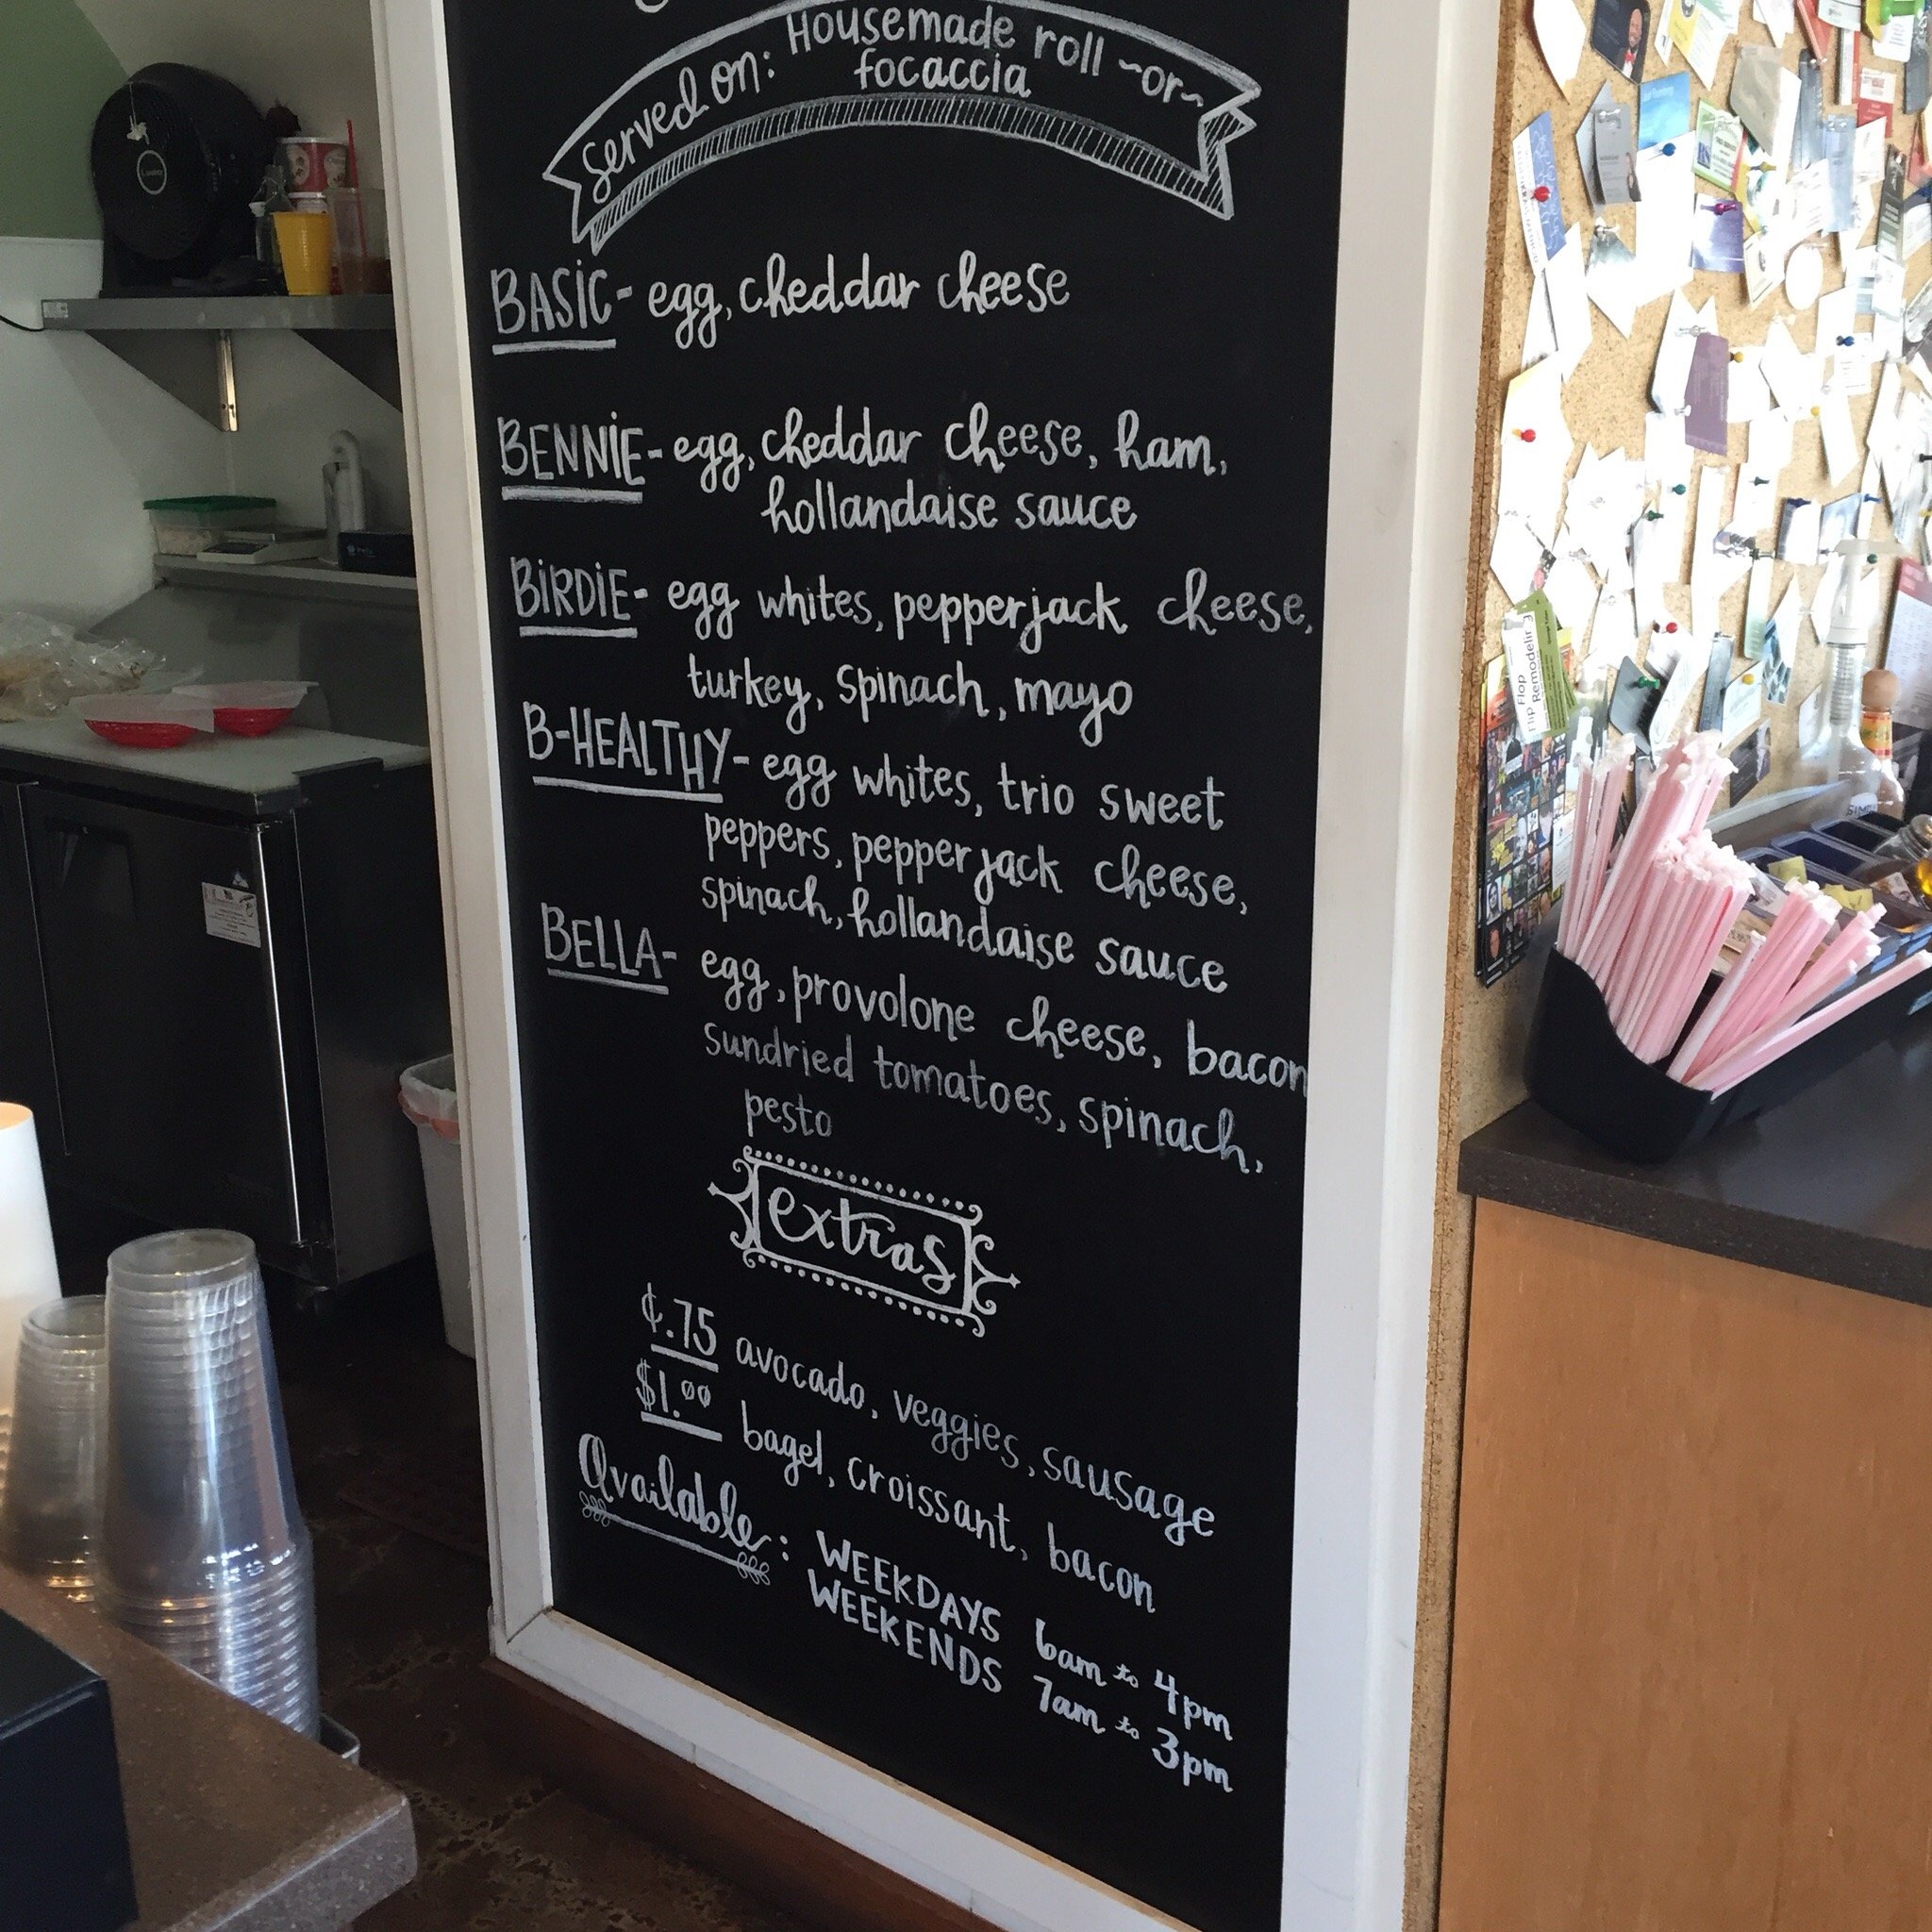 served on: Housemade roll ~or~
focaccia
BASIC- egg, cheddar cheese
BENNIE- egg, cheddar cheese, ham,
hollandaise sauce
BIRDIE- egg whites, pepperjack cheese,
turkey, spinach, mayo
B-HEALTHY- egg whites, trio sweet
peppers, pepperjack cheese,
spinach, hollandaise sauce
BELLA- egg, provolone cheese, bacon
sundried tomatoes, spinach,
pesto
extras
¢.75 avocado, veggies, sausage
$1.00 bagel, croissant, bacon
Available: WEEKDAYS 6am to 4pm
WEEKENDS 7am to 3pm
Flip Flop
Remodelin